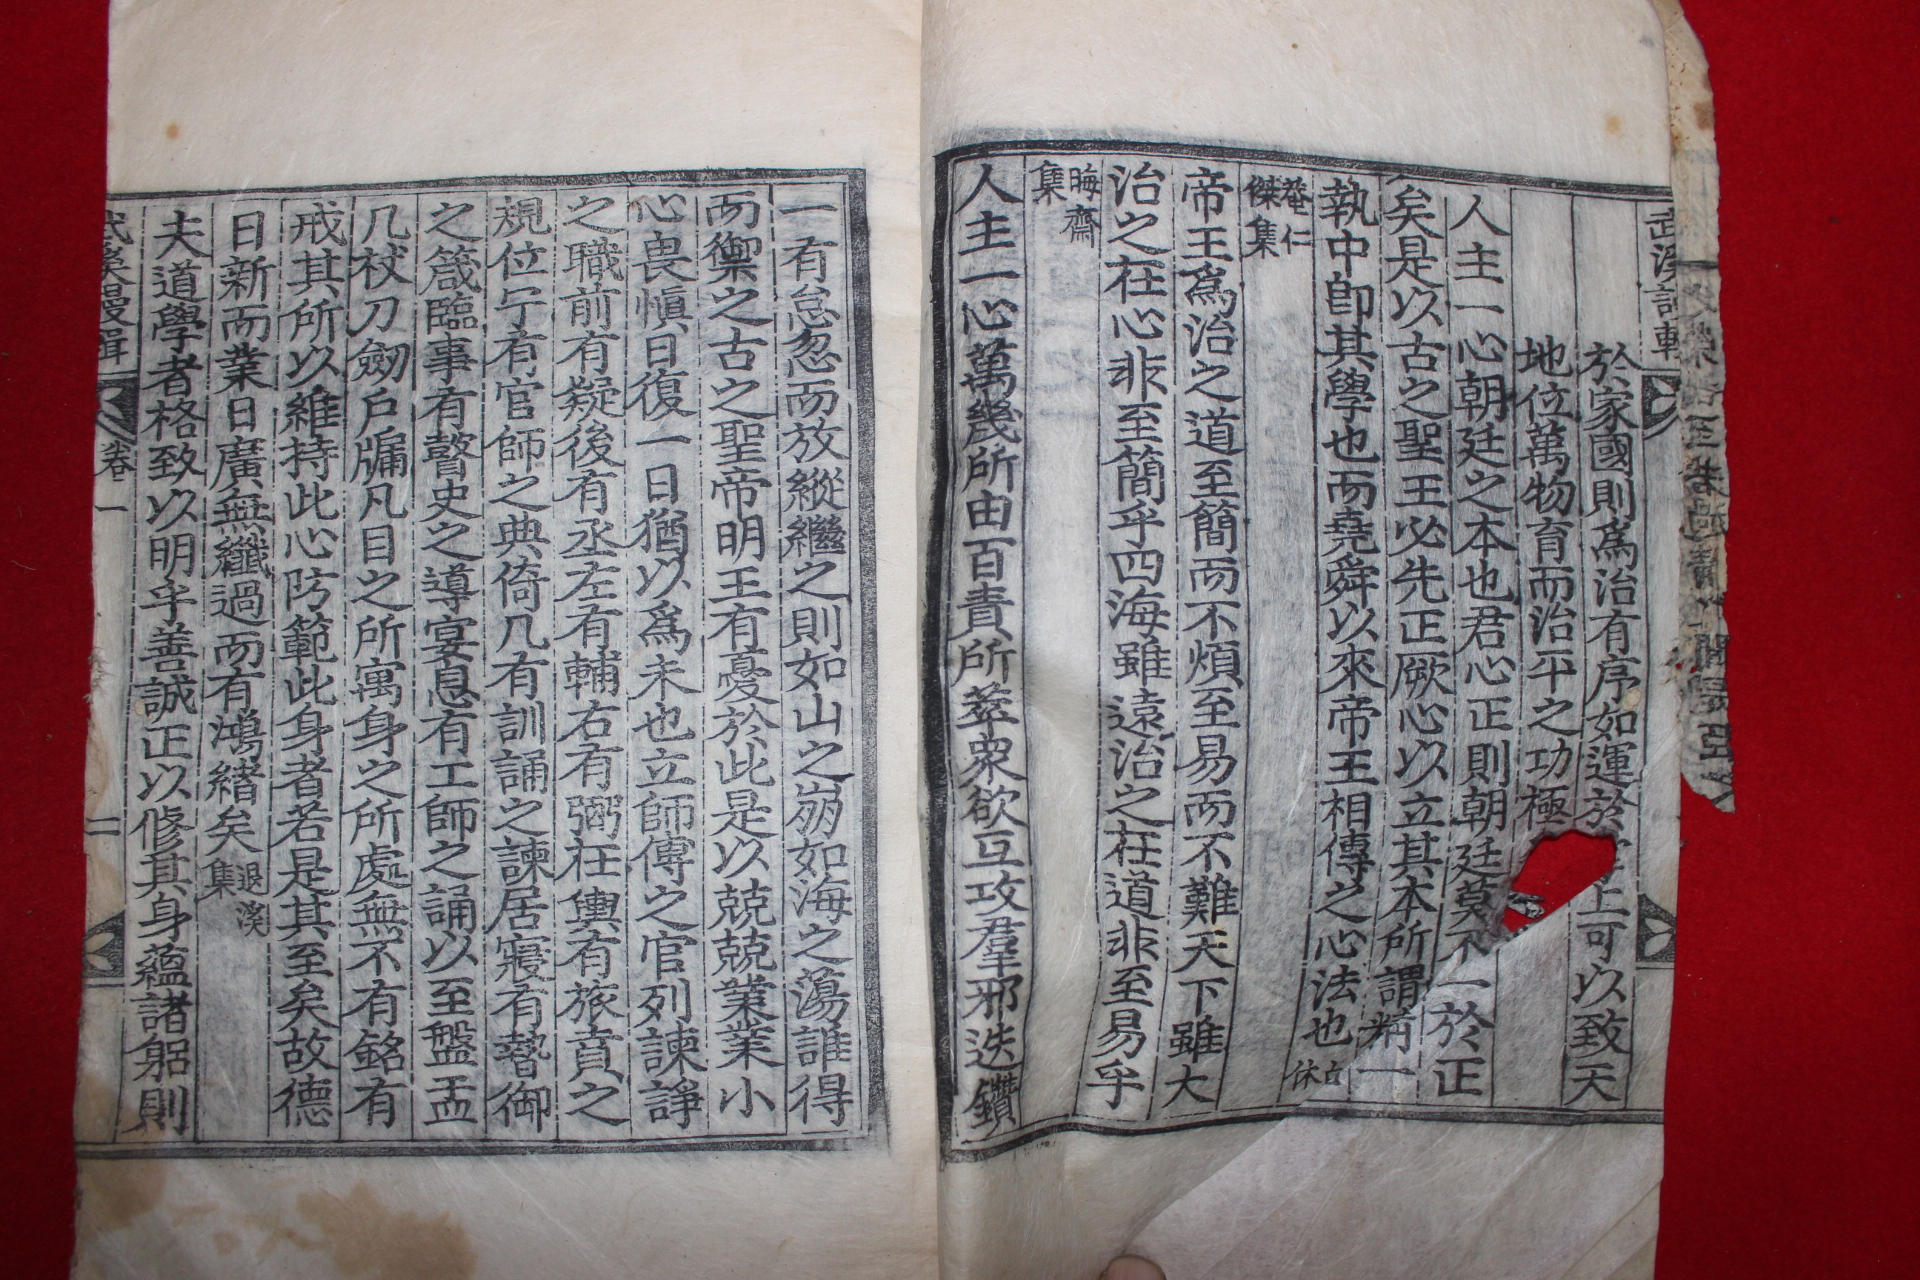 於家國則爲治有序如運於上可以致天
地位萬物育而治平之功極
人主一心朝廷之本也君心正則朝廷莫不一於正
矣是以古之聖王必先正厥心以立其本所謂精一
執中卽其學也而堯舜以來帝王相傳之心法也 休
菴仁
傑集
帝王爲治之道至簡而不煩至易而不難天下雖大
治之在心非至簡乎四海雖遠治之在道非至易乎
晦齋
集
人主一心萬幾所由百責所萃衆欲互攻羣邪迭鑽
一有怠忽而放縱繼之則如山之崩如海之蕩誰得
而禦之古之聖帝明王有憂於此是以兢兢業業小
心畏愼日復一日猶以爲未也立師傅之官列諫諍
之職前有疑後有丞左有輔右有弼在輿有旅賁之
規位宁有官師之典倚几有訓誦之諫居寢有暬御
之箴臨事有瞽史之導宴息有工師之誦以至盤盂
几杖刀劒戶牖凡目之所寓身之所處無不有銘有
戒其所以維持此心防範此身者若是其至矣故德
日新而業日廣無纖過而有鴻緖矣 退溪
集
夫道學者格致以明乎善誠正以修其身蘊諸躬則
卷一
二